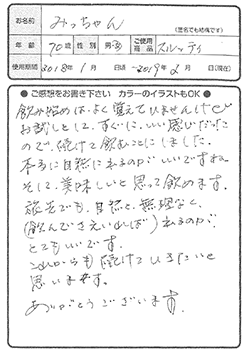 お名前 みっちゃん (匿名でも結構です)
年齢 70歳 性別 男・女 ご使用商品 スルッティ
使用期間 2018年 1月 日頃 ~2019年 2月 日(現在)
● ご感想をお書き下さい カラーのイラストもOK ●
飲み始めはよく覚えていませんけど
お試しとして、すぐに、いい感じだった
ので、続けて飲むことにしました。
本当に自然に出るのがいいですね。
そして、美味しいと思って飲めます。
旅先でも、自然と、無理なく、
(飲んでさえいれば)出るのが、
とてもいいです。
これからも続けていきたいと
思います。
ありがとうございます。